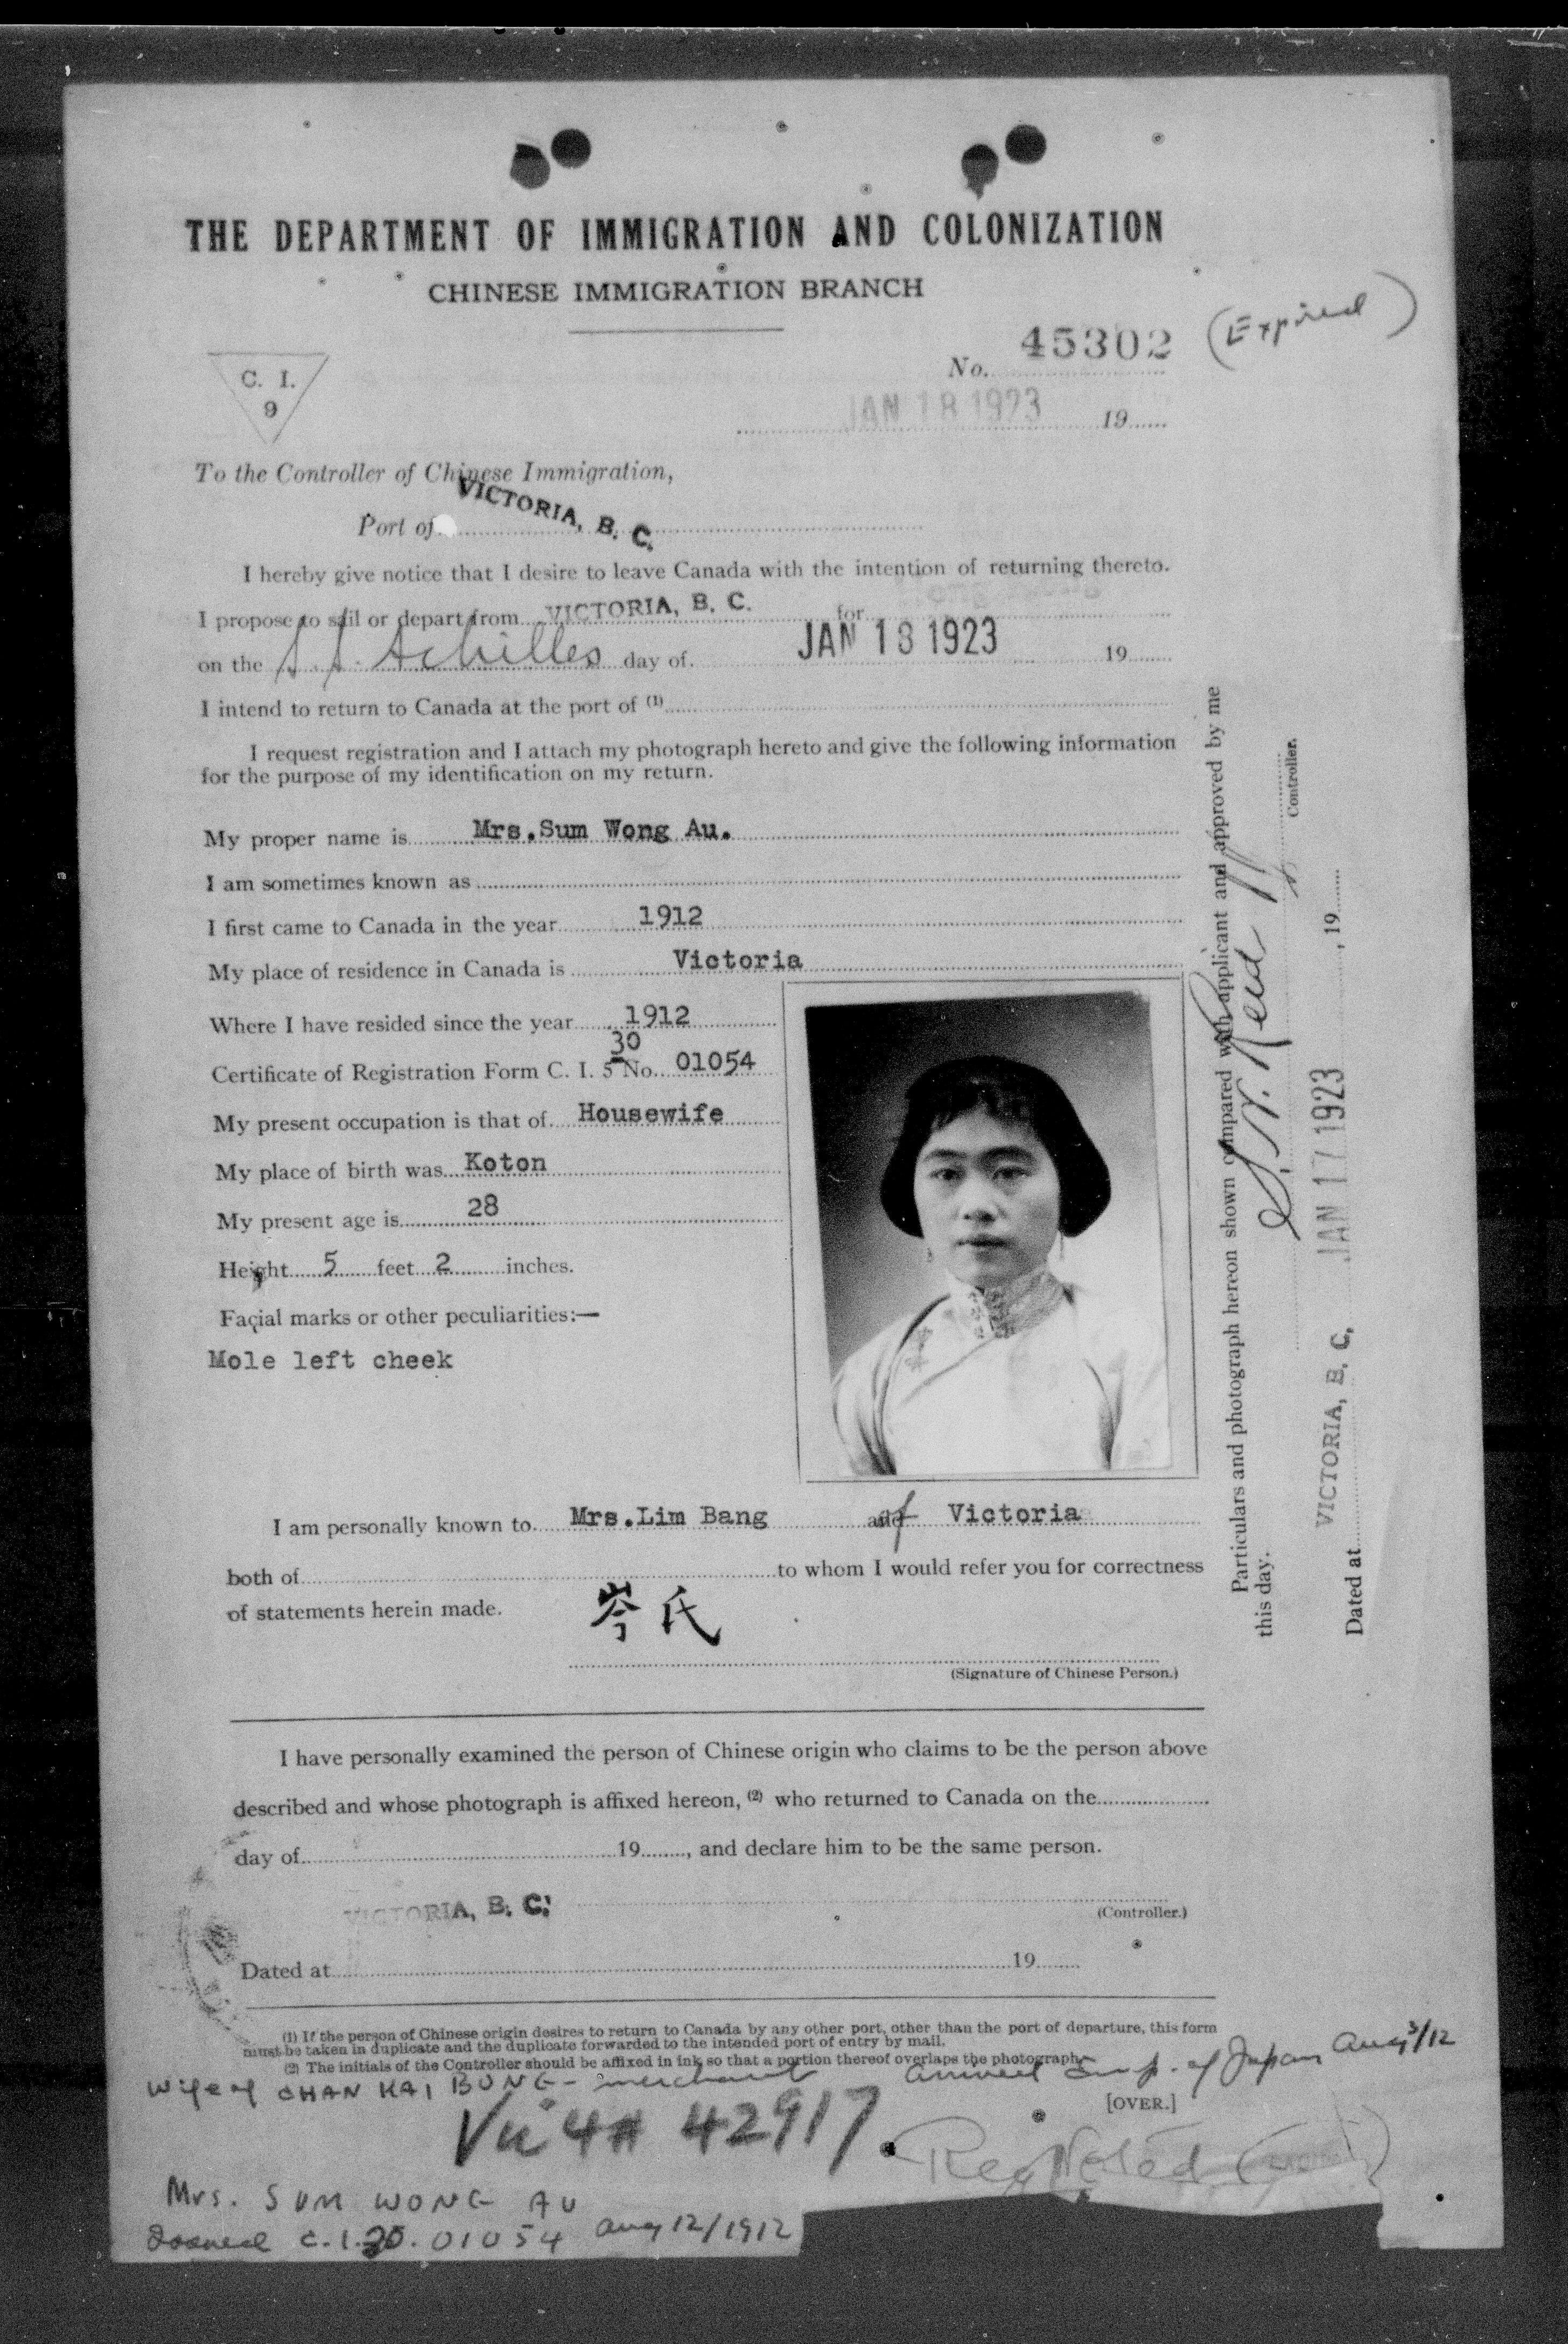 THE DEPARTMENT OF IMMIGRATION AND COLONIZATION
CHINESE IMMIGRATION BRANCH
No. 45302 (Expired)
C. I.
9
JAN 18 1923 19
To the Controller of Chinese Immigration,
Port of VICTORIA, B. C.
I hereby give notice that I desire to leave Canada with the intention of returning thereto.
I propose to sail or depart from VICTORIA, B. C. for
on the S.S. Achilles day of JAN 18 1923 19
I intend to return to Canada at the port of (1)
I request registration and I attach my photograph hereto and give the following information
for the purpose of my identification on my return.
My proper name is Mrs.Sum Wong Au.
I am sometimes known as
I first came to Canada in the year 1912
My place of residence in Canada is Victoria
Where I have resided since the year 1912
30
Certificate of Registration Form C. I. 5 No. 01054
My present occupation is that of Housewife
My place of birth was Koton
My present age is 28
Height 5 feet 2 inches.
Facial marks or other peculiarities:—
Mole left cheek
I am personally known to Mrs.Lim Bang and of Victoria
both of to whom I would refer you for correctness
of statements herein made.
岑氏
(Signature of Chinese Person.)
I have personally examined the person of Chinese origin who claims to be the person above
described and whose photograph is affixed hereon, (2) who returned to Canada on the
day of 19, and declare him to be the same person.
VICTORIA, B. C.
(Controller.)
Dated at 19
(1) If the person of Chinese origin desires to return to Canada by any other port, other than the port of departure, this form
must be taken in duplicate and the duplicate forwarded to the intended port of entry by mail.
(2) The initials of the Controller should be affixed in ink so that a portion thereof overlaps the photograph.
Wife of CHAN KAI BUNG - merchant arrived Emp. of Japan Aug 3/12
[OVER.]
Vic 4# 42917.
Registered
Mrs. SUM WONG AU
Issued C.I.30. 01054 Aug 12/1912
Particulars and photograph hereon shown compared with applicant and approved by me
this day.
Controller.
Dated at VICTORIA, B. C. JAN 17 1923, 19